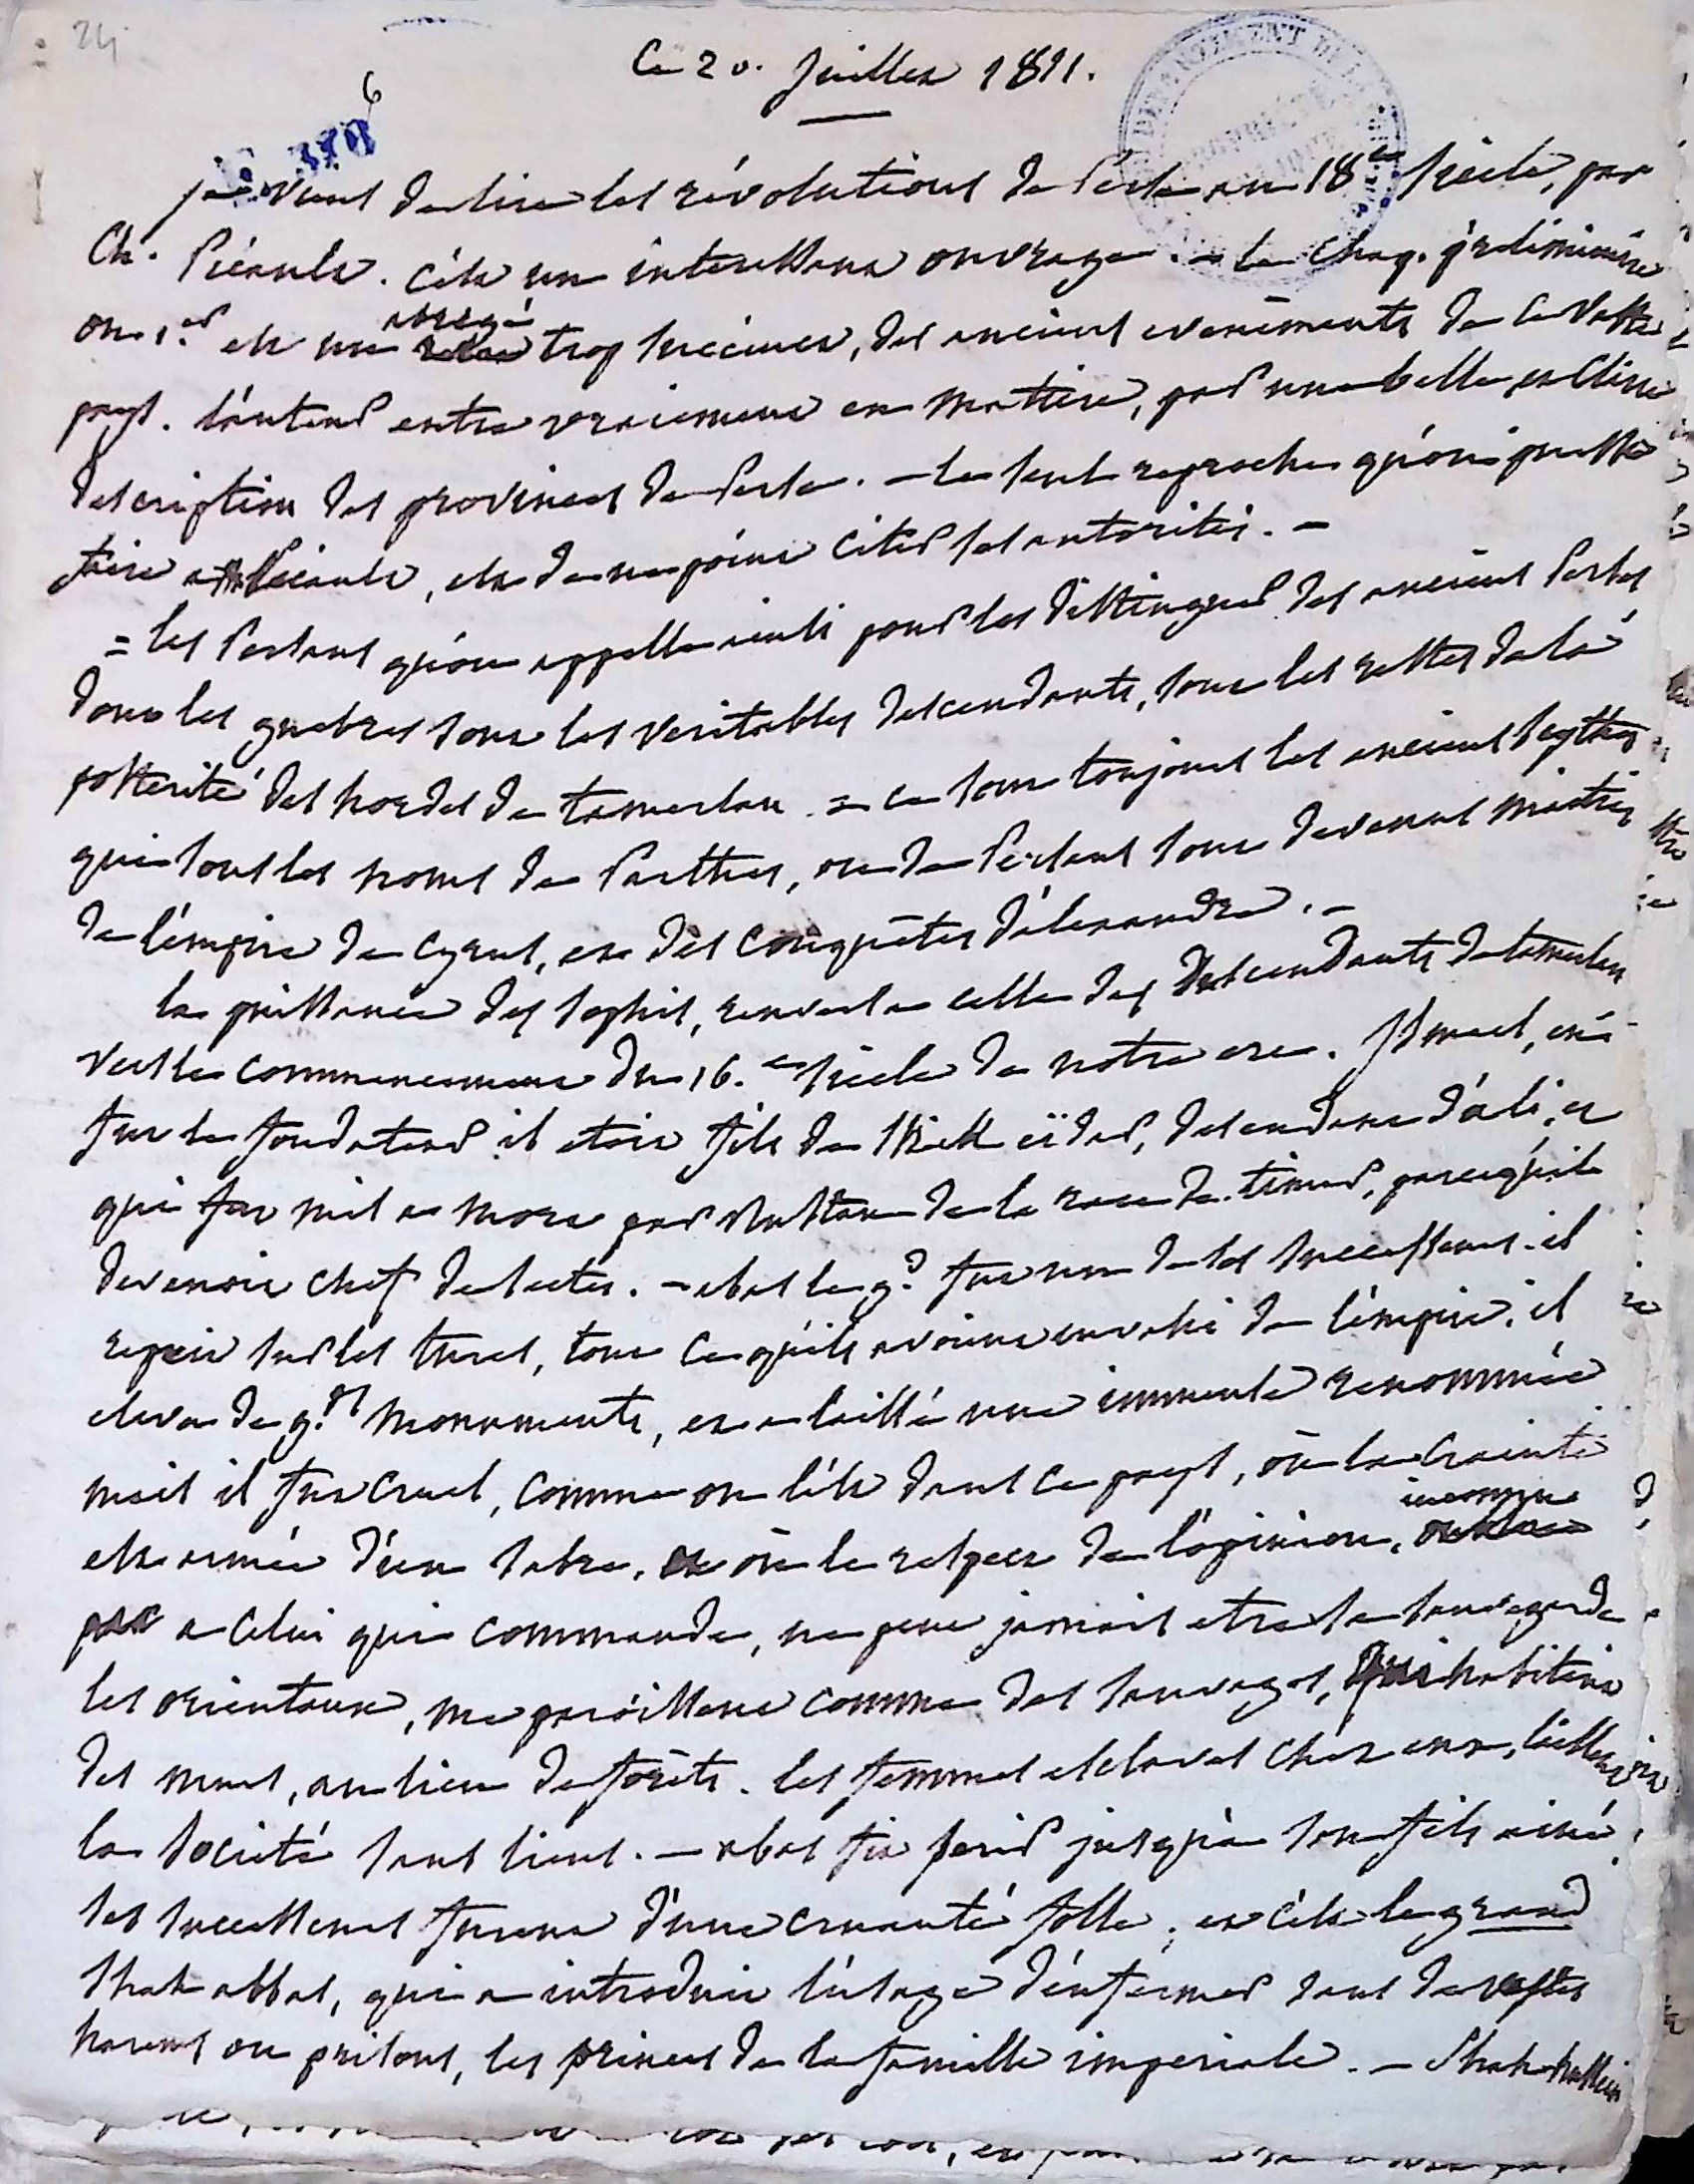 24
6
Ce 20. juillet 1811.
je viens de lire les révolutions de Perse au 18e siècle, par
Ch. Picault. c'est un interessant ouvrage. – le chap. préliminaire
ou 1er est un abregé trop succinct, des anciens evenements de ce vaste
pays. l'auteur entre vraiement en matiere, par une belle et claire
description des provinces de Perse. – le seul reproche qu'on puisse
faire a Picault, est de ne point citer ses autorités. –
= les Persans qu'on appelle ainsi pour les distinguer des anciens Perses
dont les guebres sont les veritables descendants, sont les restes de la
posterité des hordes de tamerlan. = ce sont toujours les anciens scythes
qui sous les noms de Parthes, ou de Persans sont devenus maitres
de l'empire de Cyrus, et des conquêtes d'alexandre. –
la puissance des sophis, renversa celle des descendants de tamerlan
vers le commencement du 16.e siècle de notre ere. Ismael, en
fut le fondateur il etoit fils de Shiek eïdar, descendant d'ali, et
qui fut mis a mort par Rustan de la race de timur, parcequ'il
devenoit chef de sectes. – abas le gd. fut un de ses successeurs. il
reprit sur les turcs, tout ce qu'ils avoient envahi de l'empire. il
eleva de gds monuments, et a laissé une immense renommée
mais il fut cruel, comme on l'est dans ce pays, où la crainte
est armée d'un sabre, et où le respect de l'opinion, inconnu
a celui qui commande, ne peut jamais etre sa sauvegarde.
les orientaux, me paroissent comme des sauvages, qui habitent
des murs, au lieu de forêts. les femmes esclaves chez eux, laissent
la société sans liens. – abas fit perir jusqu'à son fils ainé.
ses successeurs furent d'une cruauté folle; et c'est le grand
Shah abbas, qui a introduit l'usage d'enfermer dans de vastes
harems ou prisons, les princes de la famille imperiale. – Shah hussein